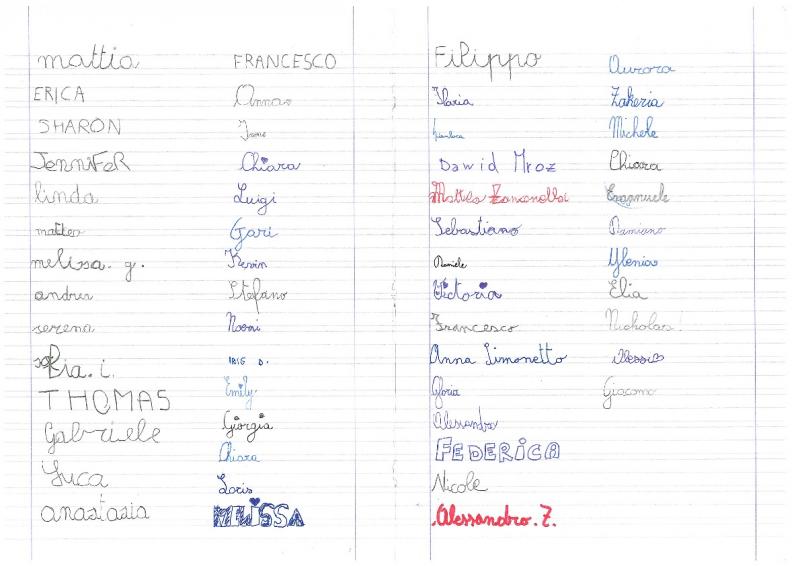 mattia
ERICA
SHARON
JENNiFeR
linda
matteo
melissa. g.
andrea
serena
THOMAS
Gabriele
Luca
anastasia
FRANCESCO
Anna
Irene
Chiara
Luigi
Gari
Kevin
Stefano
Noemi
IRIS D.
Emily
Giorgia
Chiara
Loris
MELISSA
Filippo
Ilaria
Gianluca
Dawid Mroz
Matteo Zancanella
Sebastiano
Daniele
Victoria
Francesco
Anna Simonetto
Gloria
Alessandra
FEDERiCA
Nicole
Alessandro. Z.
Aurora
Zakeria
Michele
Chiara
Emanuele
Damiano
Ylenia
Elia
Nicholas!
Alessio
Giacomo